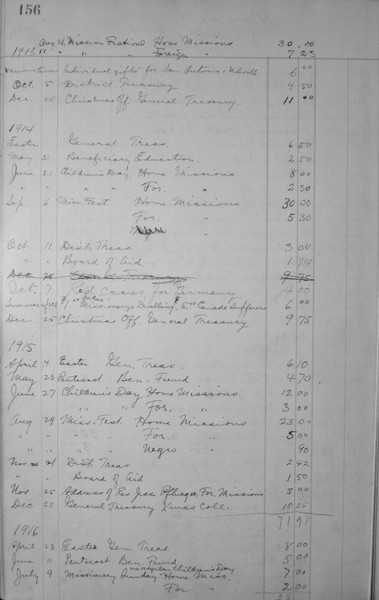 156
Aug 14 Mission Festival Home Missions 30.00
1913 " " " Foreign " 7 23
Individual gifts for San Antonio 6 00
Oct. 5 District Treasury 4 50
Dec. 25 Christmas Off. General Treasury 11 00
1914
Easter General Treas. 6 50
May 31 Beneficiary Education 2 50
June 21 Children's Day, Home Missions 8 00
" " " For. " 2 30
Sep 6 Miss. Fest. Home Missions 30 00
For. " 5 30
Oct. 11 Dist. Treas. 3 04
" " Board of Aid 1 94
Dec 25 General Treasury 9 75
Oct. 7 Red Cross, for Germany 4 00
Missionary 6 00
Dec. 25 Christmas Off. General Treasury 9 75
1915
April 4 Easter Gen. Treas. 6 10
May 23 Pentecost Ben. Fund 4 70
June 27 Children's Day Home Missions 12 00
" " For. " 3 00
Aug 29 Miss. Fest. Home Missions 23 00
" " " For. " 5 00
" " " Negro " 90
Nov. 21 Dist. Treas. 2 42
" " Board of Aid 1 50
Nov 25 Address of Rev. For. Missions 3 00
Dec 25 General Treasury Xmas Coll. 10 55
71.97
1916
April 23 Easter Gen Treas. 8 00
June 11 Pentecost Ben. Fund 5 00
no regular Children's Day
July 9 Missionary Sunday Home Miss. 7 00
For " 2 00